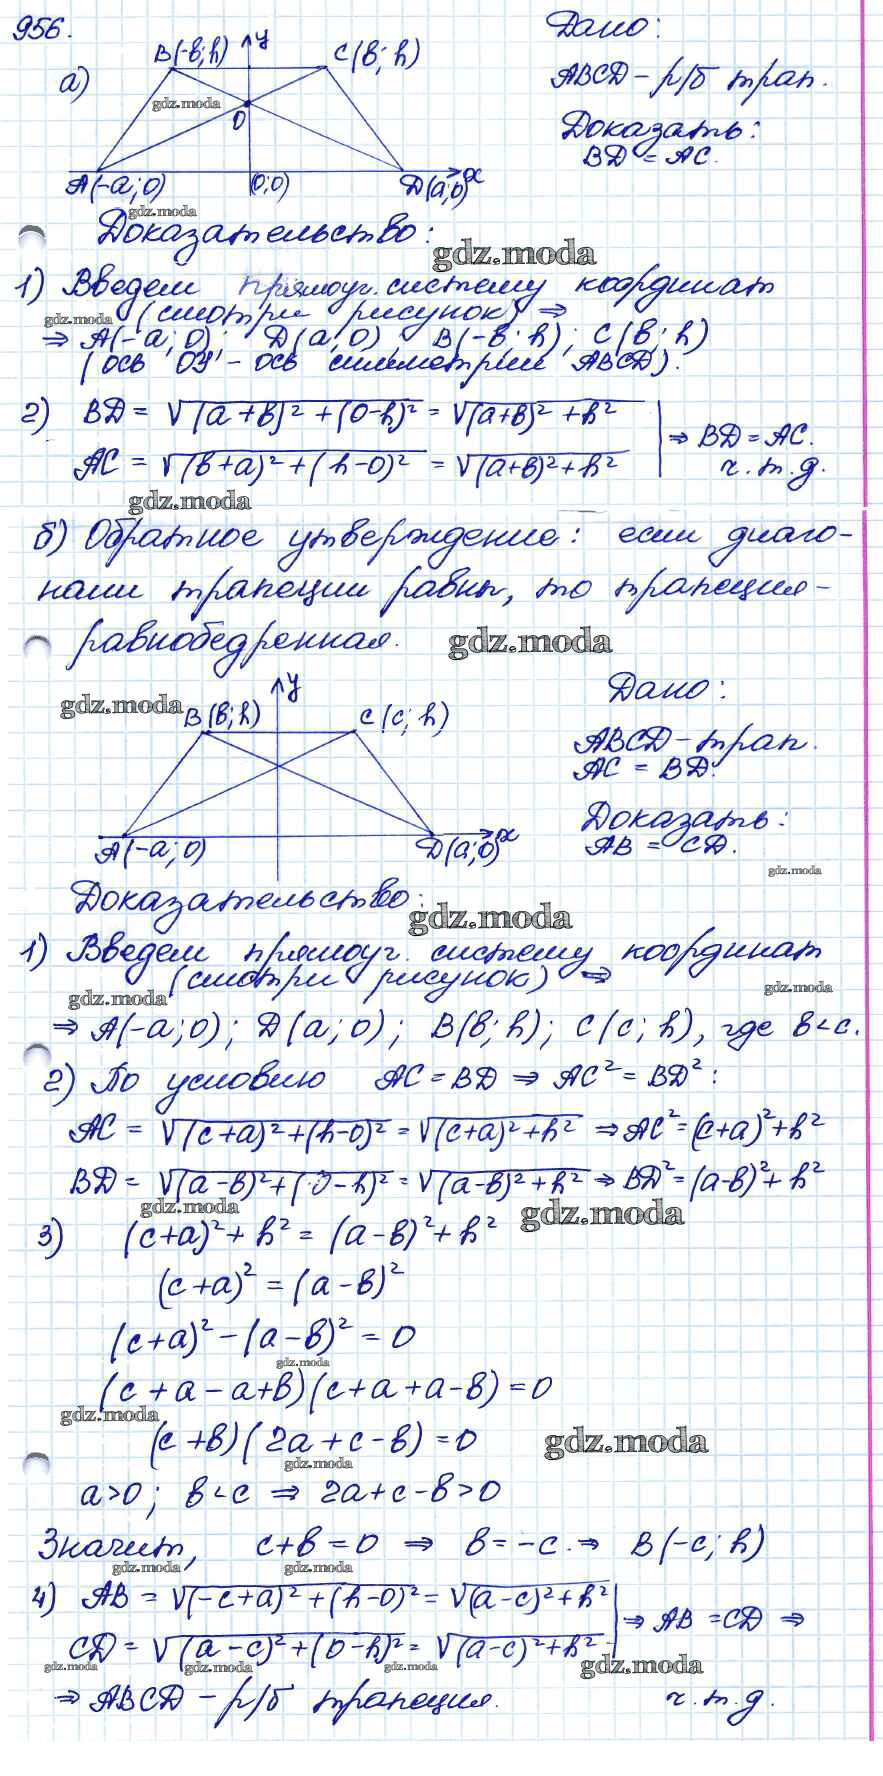 956.
а)
B(-в; h)
y
C(в; h)
O
A(-a; 0)
(0; 0)
D(a; 0)
x
Дано:
ABCD - р/б трап.
Доказать:
BD = AC.
gdz.moda
gdz.moda
Доказательство:
gdz.moda
1) Введем прямоуг. систему координат
(смотри рисунок) ⇒
gdz.moda
⇒ A(-a; 0); D(a; 0), B(-в; h); C(в; h)
(ось OY - ось симметрии ABCD).
2) BD = √((a+в)² + (0-h)²) = √((a+в)² + h²)
AC = √((в+a)² + (h-0)²) = √((a+в)² + h²)
⇒ BD = AC.
ч.т.д.
gdz.moda
б) Обратное утверждение: если диаго-
нали трапеции равны, то трапеция -
равнобедренная.
gdz.moda
gdz.moda
y
B(в; h)
C(c; h)
A(-a; 0)
D(a; 0)
x
Дано:
ABCD - трап.
AC = BD.
Доказать:
AB = CD.
gdz.moda
Доказательство:
gdz.moda
1) Введем прямоуг. систему координат
(смотри рисунок) ⇒
gdz.moda
gdz.moda
⇒ A(-a; 0); D(a; 0); B(в; h); C(c; h), где в<c.
2) По условию AC = BD ⇒ AC² = BD²:
AC = √((c+a)² + (h-0)²) = √((c+a)² + h²) ⇒ AC² = (c+a)² + h²
BD = √((a-в)² + (0-h)²) = √((a-в)² + h²) ⇒ BD² = (a-в)² + h²
gdz.moda
gdz.moda
3) (c+a)² + h² = (a-в)² + h²
(c+a)² = (a-в)²
(c+a)² - (a-в)² = 0
gdz.moda
(c+a-a+в)(c+a+a-в) = 0
gdz.moda
(c+в)(2a+c-в) = 0
gdz.moda
gdz.moda
a>0; в<c ⇒ 2a+c-в>0
Значит, c+в = 0 ⇒ в = -c. ⇒ B(-c; h)
gdz.moda
gdz.moda
4) AB = √((-c+a)² + (h-0)²) = √((a-c)² + h²)
CD = √((a-c)² + (0-h)²) = √((a-c)² + h²)
⇒ AB = CD ⇒
gdz.moda
gdz.moda
gdz.moda
gdz.moda
⇒ ABCD - р/б трапеция.
ч.т.д.